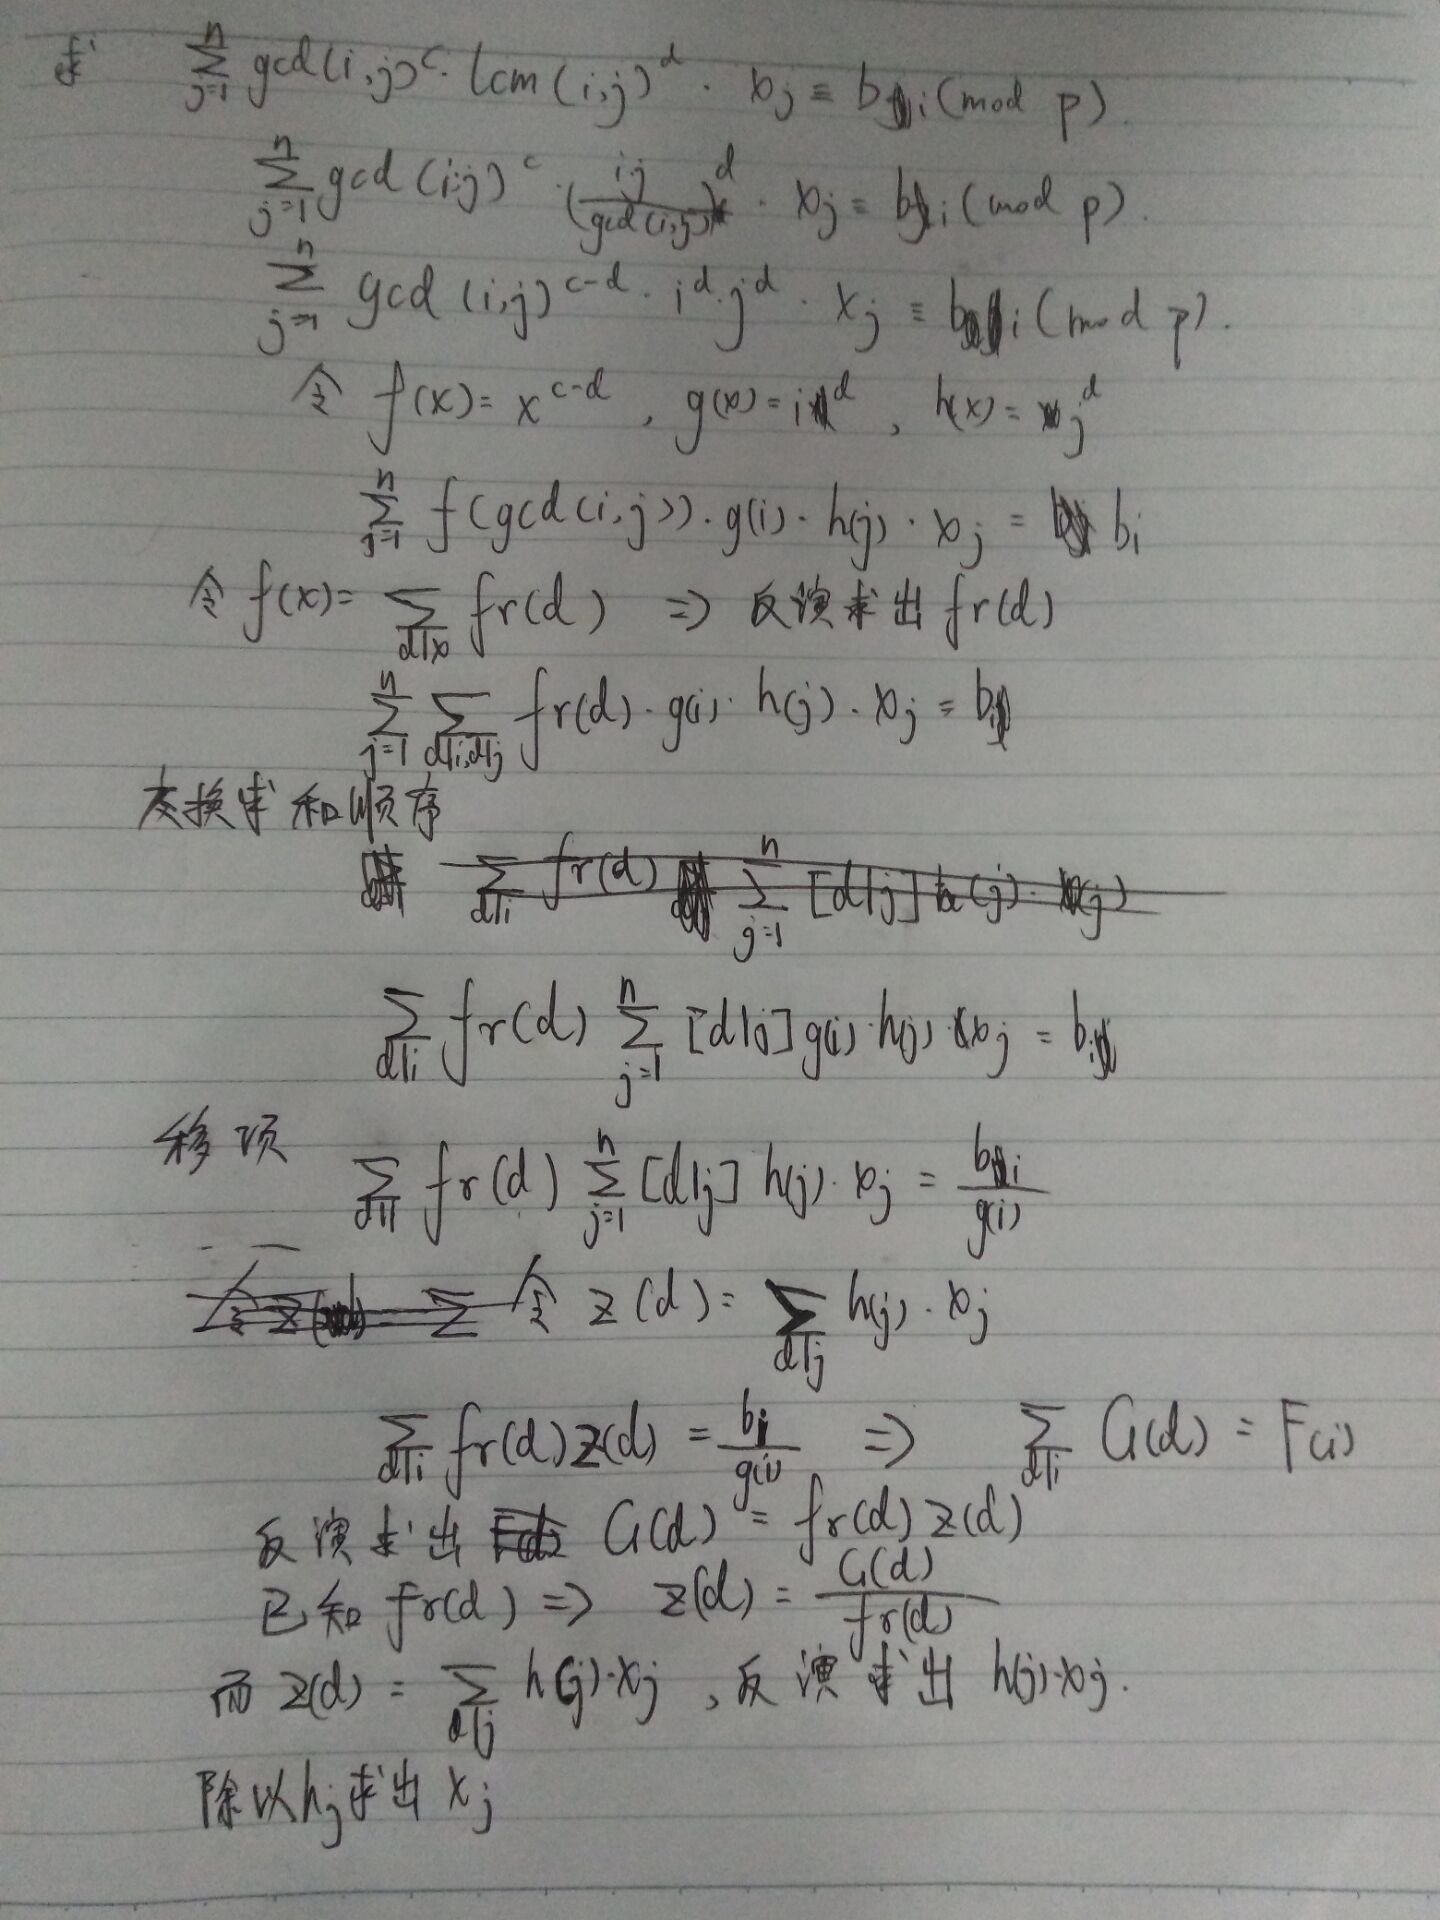 求 \sum_{j=1}^{n} gcd(i,j)^c · lcm(i,j)^d · x_j ≡ b_i (mod p).
\sum_{j=1}^{n} gcd(i,j)^c · (\frac{ij}{gcd(i,j)})^d · x_j ≡ b_i (mod p).
\sum_{j=1}^{n} gcd(i,j)^{c-d} · i^d · j^d · x_j ≡ b_i (mod p).
令 f(x) = x^{c-d}, g(x) = i^d, h(x) = j^d
\sum_{j=1}^{n} f(gcd(i,j)) · g(i) · h(j) · x_j = b_i
令 f(x) = \sum_{d|x} fr(d) ⇒ 反演求出 fr(d)
\sum_{j=1}^{n} \sum_{d|i,d|j} fr(d) · g(i) · h(j) · x_j = b_i
交换求和顺序
\sum_{d|i} fr(d) \sum_{j=1}^{n} [d|j] h(j) · x(j)
\sum_{d|i} fr(d) \sum_{j=1}^{n} [d|j] g(i) · h(j) · x_j = b_i
移项
\sum_{d|i} fr(d) \sum_{j=1}^{n} [d|j] h(j) · x_j = \frac{b_i}{g(i)}
令 z(d) = \sum_{d|j} h(j) · x_j
\sum_{d|i} fr(d) z(d) = \frac{b_i}{g(i)} ⇒ \sum_{d|i} G(d) = F(i)
反演求出 G(d) = fr(d) z(d)
已知 fr(d) ⇒ z(d) = \frac{G(d)}{fr(d)}
而 z(d) = \sum_{d|j} h(j) · x_j , 反演求出 h(j) · x_j.
除以 h_j 求出 x_j